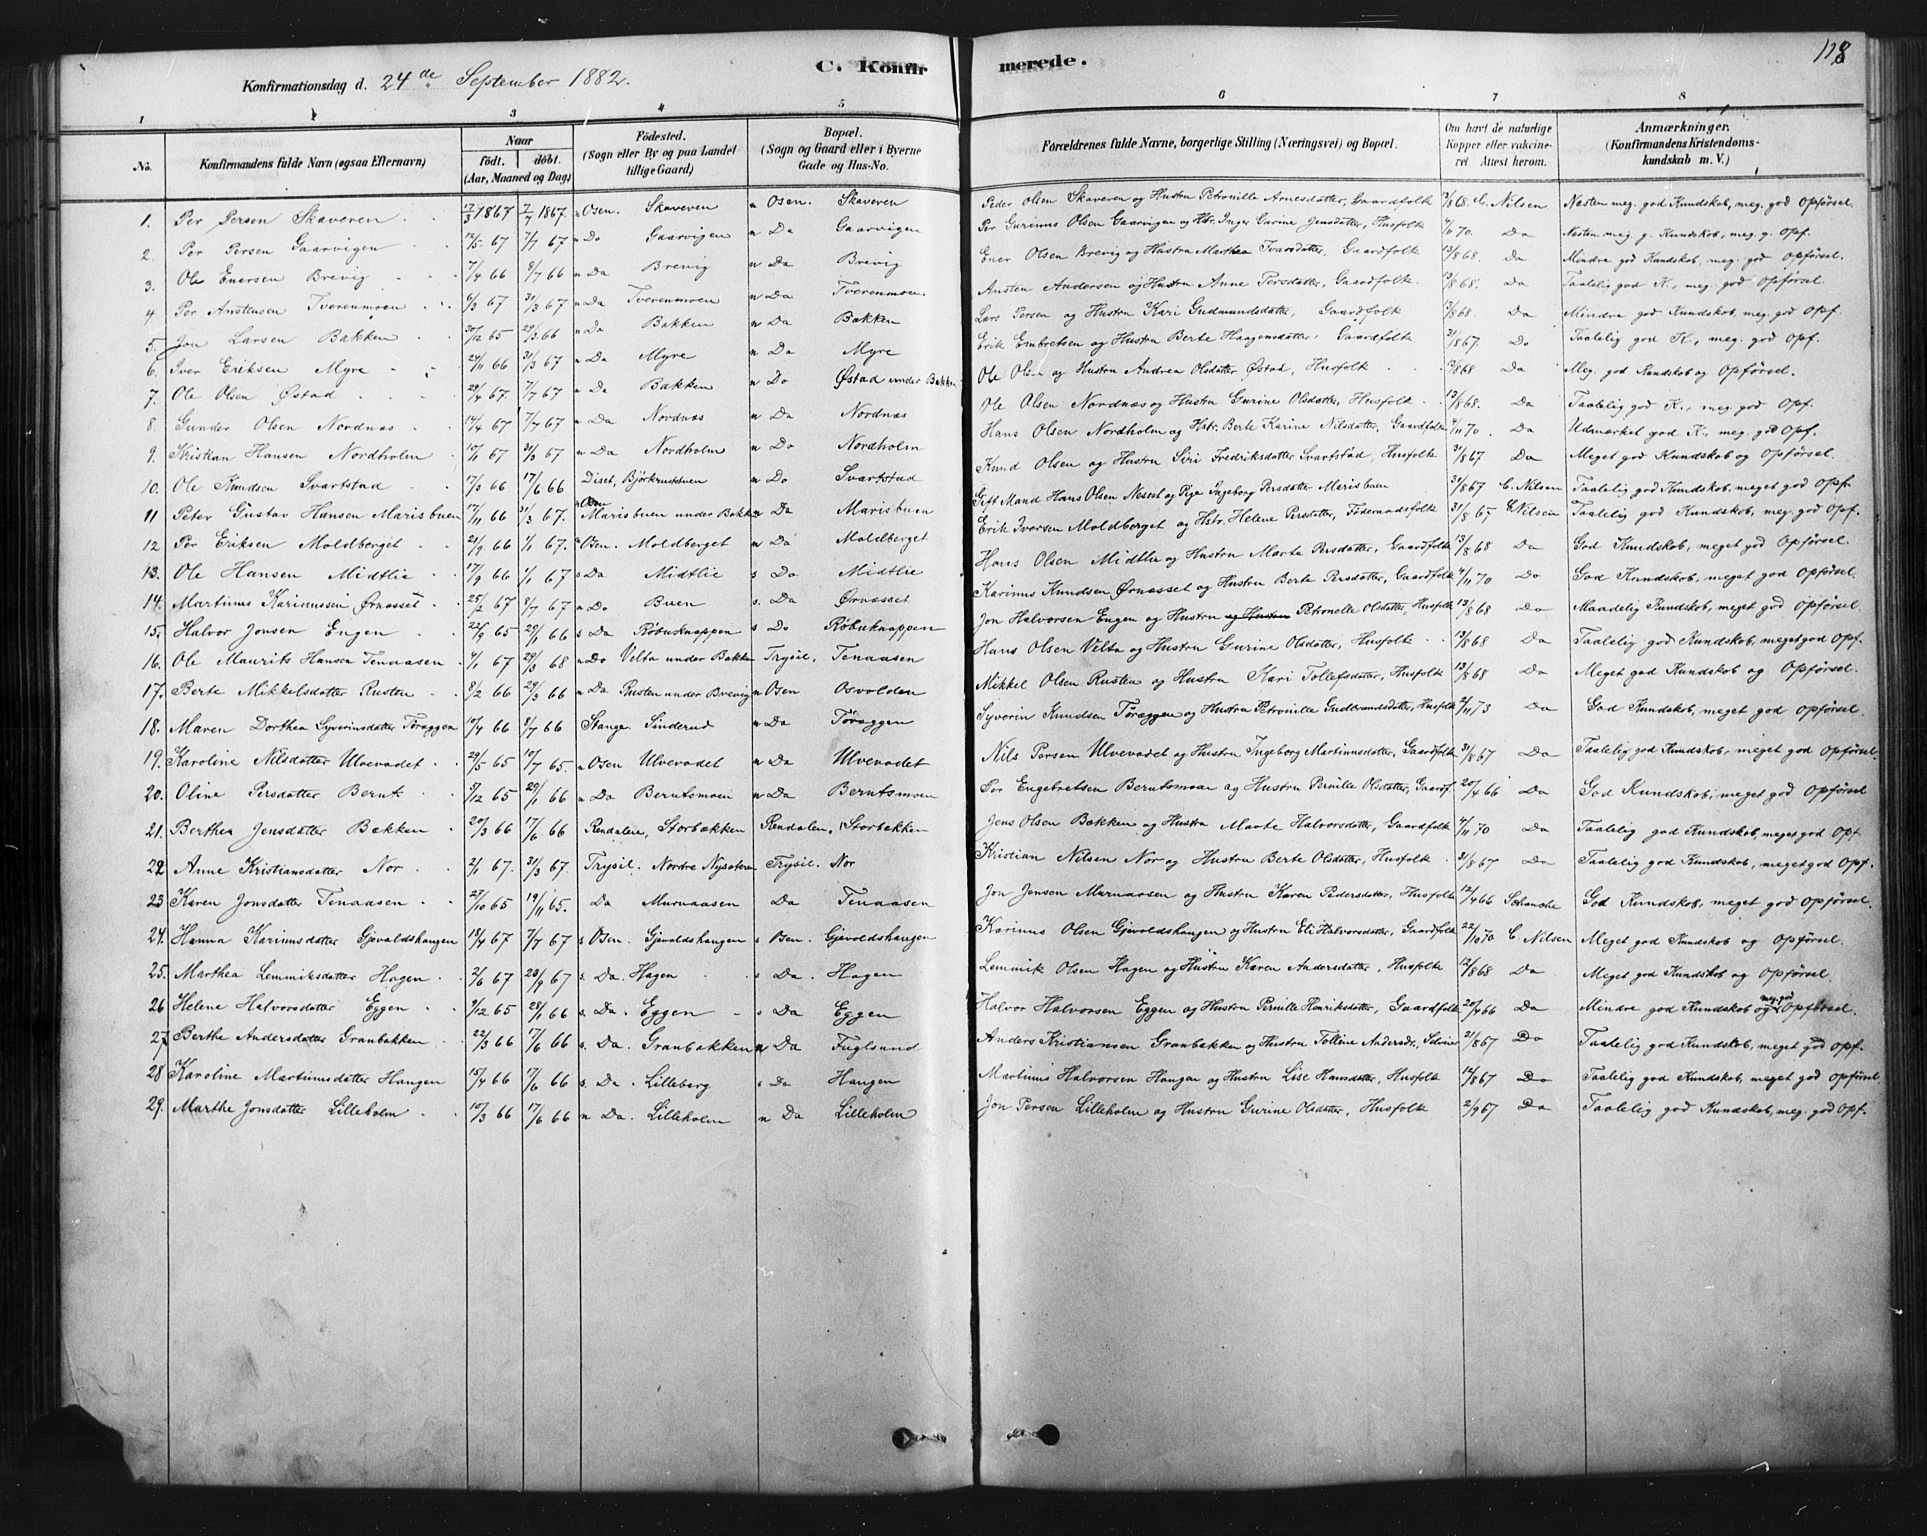 118
C. Konfirmerede.
Konfirmationsdag d. 24de September 1882.
1 2 3 4 5 6 7 8
No. Konfirmandens fulde Navn (ogsaa Efternavn) Naar født. døbt. (Aar, Maaned og Dag) Fødested. (Sogn eller By og paa Landet tillige Gaard) Bopæl. (Sogn og Gaard eller i Byerne Gade og Hus-No. Forældrenes fulde Navne, borgerlige Stilling (Næringsvei) og Bopæl. Om havt de naturlige Kopper eller vakcineret Attest herom. Anmærkninger. (Konfirmandens Kristendomskundskab m. V.)
1. Per Persen Skaveren 17/3 1867 7/7 1867 n Osen. Skaveren n Osen. Skaveren Peder Olsen Skaveren og Hustru Petronille Arnesdatter, Gaardfolk 13/8 68. C. Nilsen Næsten meg. god Kundskab, meg. god Opførsel.
2. Per Persen Gaarvigen 12/5 67 7/7 67 n Do Gaarvigen n Da Gaarvigen Per Gurinus Olsen Gaarvigen og Hstr. Inger Carine Jensdatter, Husfolk 4/11 70. Da Næsten meg. g. Kundskab, meg. g. Opf.
3. Ole Enersen Brevig 7/4 66 8/7 66 n Da Brevig n Da Brevig Ener Olsen Brevig og Hustru Marthea Ivarsdatter, Gaardfolk 13/8 68. Da Mindre god Kundskab, meg. god Opførsel.
4. Per Anstensen Tverenmoen 6/3 67 31/3 67 n Da Tverenmoen n Da Tverenmoen. Ansten Andersen og Hustru Anne Persdatter, Gaardfolk 13/8 68. Da Taalelig god K., meg. god Opførsel
5. Jon Larsen Bakken 30/12 65 29/3 66 n Da Bakken n Da Bakken Lars Persen og Hustru Kari Gudmundsdatter, Gaardfolk 13/8 68. Da Mindre god Kundskab, meg. god Opf.
6. Iver Eriksen Myre 24/11 66 31/3 67 n Da Myre n Da Myre Erik Embretsen og Hustru Berte Haagensdatter, Gaardfolk 31/8 67. Do Taalelig god K., meg. god Opf.
7. Ole Olsen Østad 29/4 67. 7/7 67 n Da Bakken n Do Østad under Bakken Ole Olsen og Hustru Andrea Olsdatter Østad, Husfolk 13/8 68 Da Meg. god Kundskab og Opførsel.
8. Gunder Olsen Nordnæs 14/4 67 7/7 67 n Da Nordnæs n Da Nordnæs Ole Olsen Nordnæs og Hustru Gurine Olsdatter, Husfolk 13/8 68. Da Taalelig god K., meg. god Opf.
9. Kristian Hansen Nordholm 10/11 67 31/3 67 n Da Nordholm n Do Nordholm Hans Olsen Nordholm og Hstr. Berte Karine Nilsdatter, Gaardfolk 4/11 70. Da Udmærket god K., meg. god Opf.
10. Ole Knudsen Svartstad 17/3 66 17/6 66 Diset, n Do Svartstad Knud Olsen og Hustru Siri Fredriksdatter Svartstad, Husfolk 31/8 67 Da Meget god Kundskab og Opførsel.
11 Peter Gustav Hansen Marisbuen 17/11 66 31/3 67. n Osen Marisbuen under Bakken n Da Marisbuen Gift Mand Hans Olsen Nesset og Pige Ingeborg Persdatter Marisbuen 31/8 67 C. Nilsen Taalelig god Kundskab, meg. god Opf.
12 Per Eriksen Moldberget 21/9 66 1/1 67. n Osen. Moldberget n Da Moldberget Erik Iversen Moldberget og Hstr. Helene Persdatter, Føderaadsfolk 31/8 67 C Nilsen Taalelig god Kundskab, meg. god Opf.
13. Ole Hansen Midtlie 17/9 66 1/1 67. s Da Midtlie s Do Midtlie Hans Olsen Midtlie og Hustru Marta Persdatter, Gaardfolk 13/8 68 Da God Kundskab, meget god Opførsel.
14. Martinus Karinussen Ørnæsset 25/2 67 8/7 67 n Do Buen s. Da Ørnæsset Karinus Knudsen Ørnæsset og Hustru Berte Persdatter, Gaardfolk 4/11 70 Do God Kundskab, meget god Opførsel.
15. Halvor Jonsen Engen 22/9 65 29/1 66 s Da Røbuknappen s Do Røbuknappen Jon Halvorsen Engen og Hustru og Hustru Petronelle Olsdatter, Husfolk 13/8 68 Da Maadelig Kundskab, meget god Opførsel.
16. Ole Maurits Hansen Tenaasen 4/1 67 29/3 68 n Do Velta under Bakken Trysil, Tenaasen Hans Olsen Velta og Hustru Gurine Olsdatter, Husfolk 13/8 68 Da Taalelig god Kundskab, meget god Opf.
17. Berte Mikkelsdatter Rusten 8/2 66 29/3 66 n Da Rusten under Brevig n Osen Osvolden Mikkel Olsen Rusten og Hustru Kari Tollefsdatter, Husfolk 13/8 68 Da Meget god Kundskab og Opførsel.
18. Maren Dorthea Syverinsdatter Tøraggen 10/4 66 8/7 66 Stange. Sinderud n Da Tøraggen Syverin Knudsen Tøraggen og Hustru Petronille Gudbrandsdatter, Husfolk 2/11 73 Da God Kundskab, meget god Opførsel.
19. Karoline Nilsdatter Ulvevadet 29/5 65 10/7 65. n Osen Ulvevadet n Da Ulvevadet Nils Persen Ulvevadet og Hustru Ingeborg Martinusdatter, Gaardfolk 31/8 67 Da Taalelig god Kundskab, meget god Opførsel.
20. Oline Persdatter Bernt. 9/12 65 29/1 66 n Da Berntsmoen n Da Berntsmoen Per Engebretsen Berntsmoen og Hustru Pernille Olsdatter, Gaardf. 20/4 66 Da God Kundskab, meget god Opførsel
21. Berthea Jensdatter Bækken 20/3 66 17/6 66 Rendalen, Storbækken Rendalen, Storbækken Jens Olsen Bækken og Hustru Marte Halvorsdatter, Gaardfolk 4/11 70 Da Taalelig god Kundskab, meget god Opf.
22 Anne Kristiansdatter Nor 2/1 67. 31/3 67. Trysil. Nordre Trysil. Nor Kristian Nilsen Nor og Hustru Berte Olsdatter, Husfolk 31/8 67 Da Taalelig god Kundskab, meget god Opf.
23 Karen Jonsdatter Tenaasen 27/10 65 19/11 65. Da Murnaasen Da Tenaasen Jon Jensen Murnaasen og Hustru Karen Pedersdatter, Husfolk 12/4 66 Schanche God Kundskab, meget god Opførsel.
24. Hanna Karinusdatter Gjevaldshaugen 18/4 67 7/7 67 s Osen. Gjevaldshaugen s Osen. Gjevaldshaugen Karinus Olsen Gjevoldshaugen og Hustru Eli Halvorsdatter, Gaardfolk 22/10 70 C. Nilsen Meget god Kundskab og Opførsel.
25. Marthea Lemmiksdatter Hagen 2/6 67 23/9 67 s. Da. Hagen s Da. Hagen Lemmik Olsen Hagen og Hustru Karen Andersdatter, Husfolk 12/8 68 Da Meget god Kundskab og Opførsel
26 Helene Halvorsdatter Eggen 9/12 65 28/1 66 s. Da. Eggen s Da Eggen Halvor Halvorsen Eggen og Hustru Pernille Henriksdatter, Gaardfolk 20/4 66 Da Mindre god Kundskab og meg. god Opførsel.
27 Berthe Andersdatter Granbakken 22/3 66 17/6 66 s. Da. Granbakken n Da Fuglsund Anders Kristiansen Granbakken og Hustru Tolline Andersdr, 21/8 67 Do Taalelig god Kundskab, meget god Opf.
28 Karoline Martinusdatter Haugen 15/4 66 17/6 66 s. Da. Lilleberg s Da Haugen Martinus Halvorsen Haugen og Hustru Lise Hansdatter, Husfolk 14/8 67 Da Taalelig god Kundskab, meget god Opførsel.
29. Marthe Jonsdatter Lilleholm 10/3 66 17/6 66 n Da. Lilleholm n Da Lilleholm Jon Persen Lilleholm og Hustru Gurine Olsdatter, Husfolk 2/9 67 Da Taalelig god Kundskab, meg. god Opf.